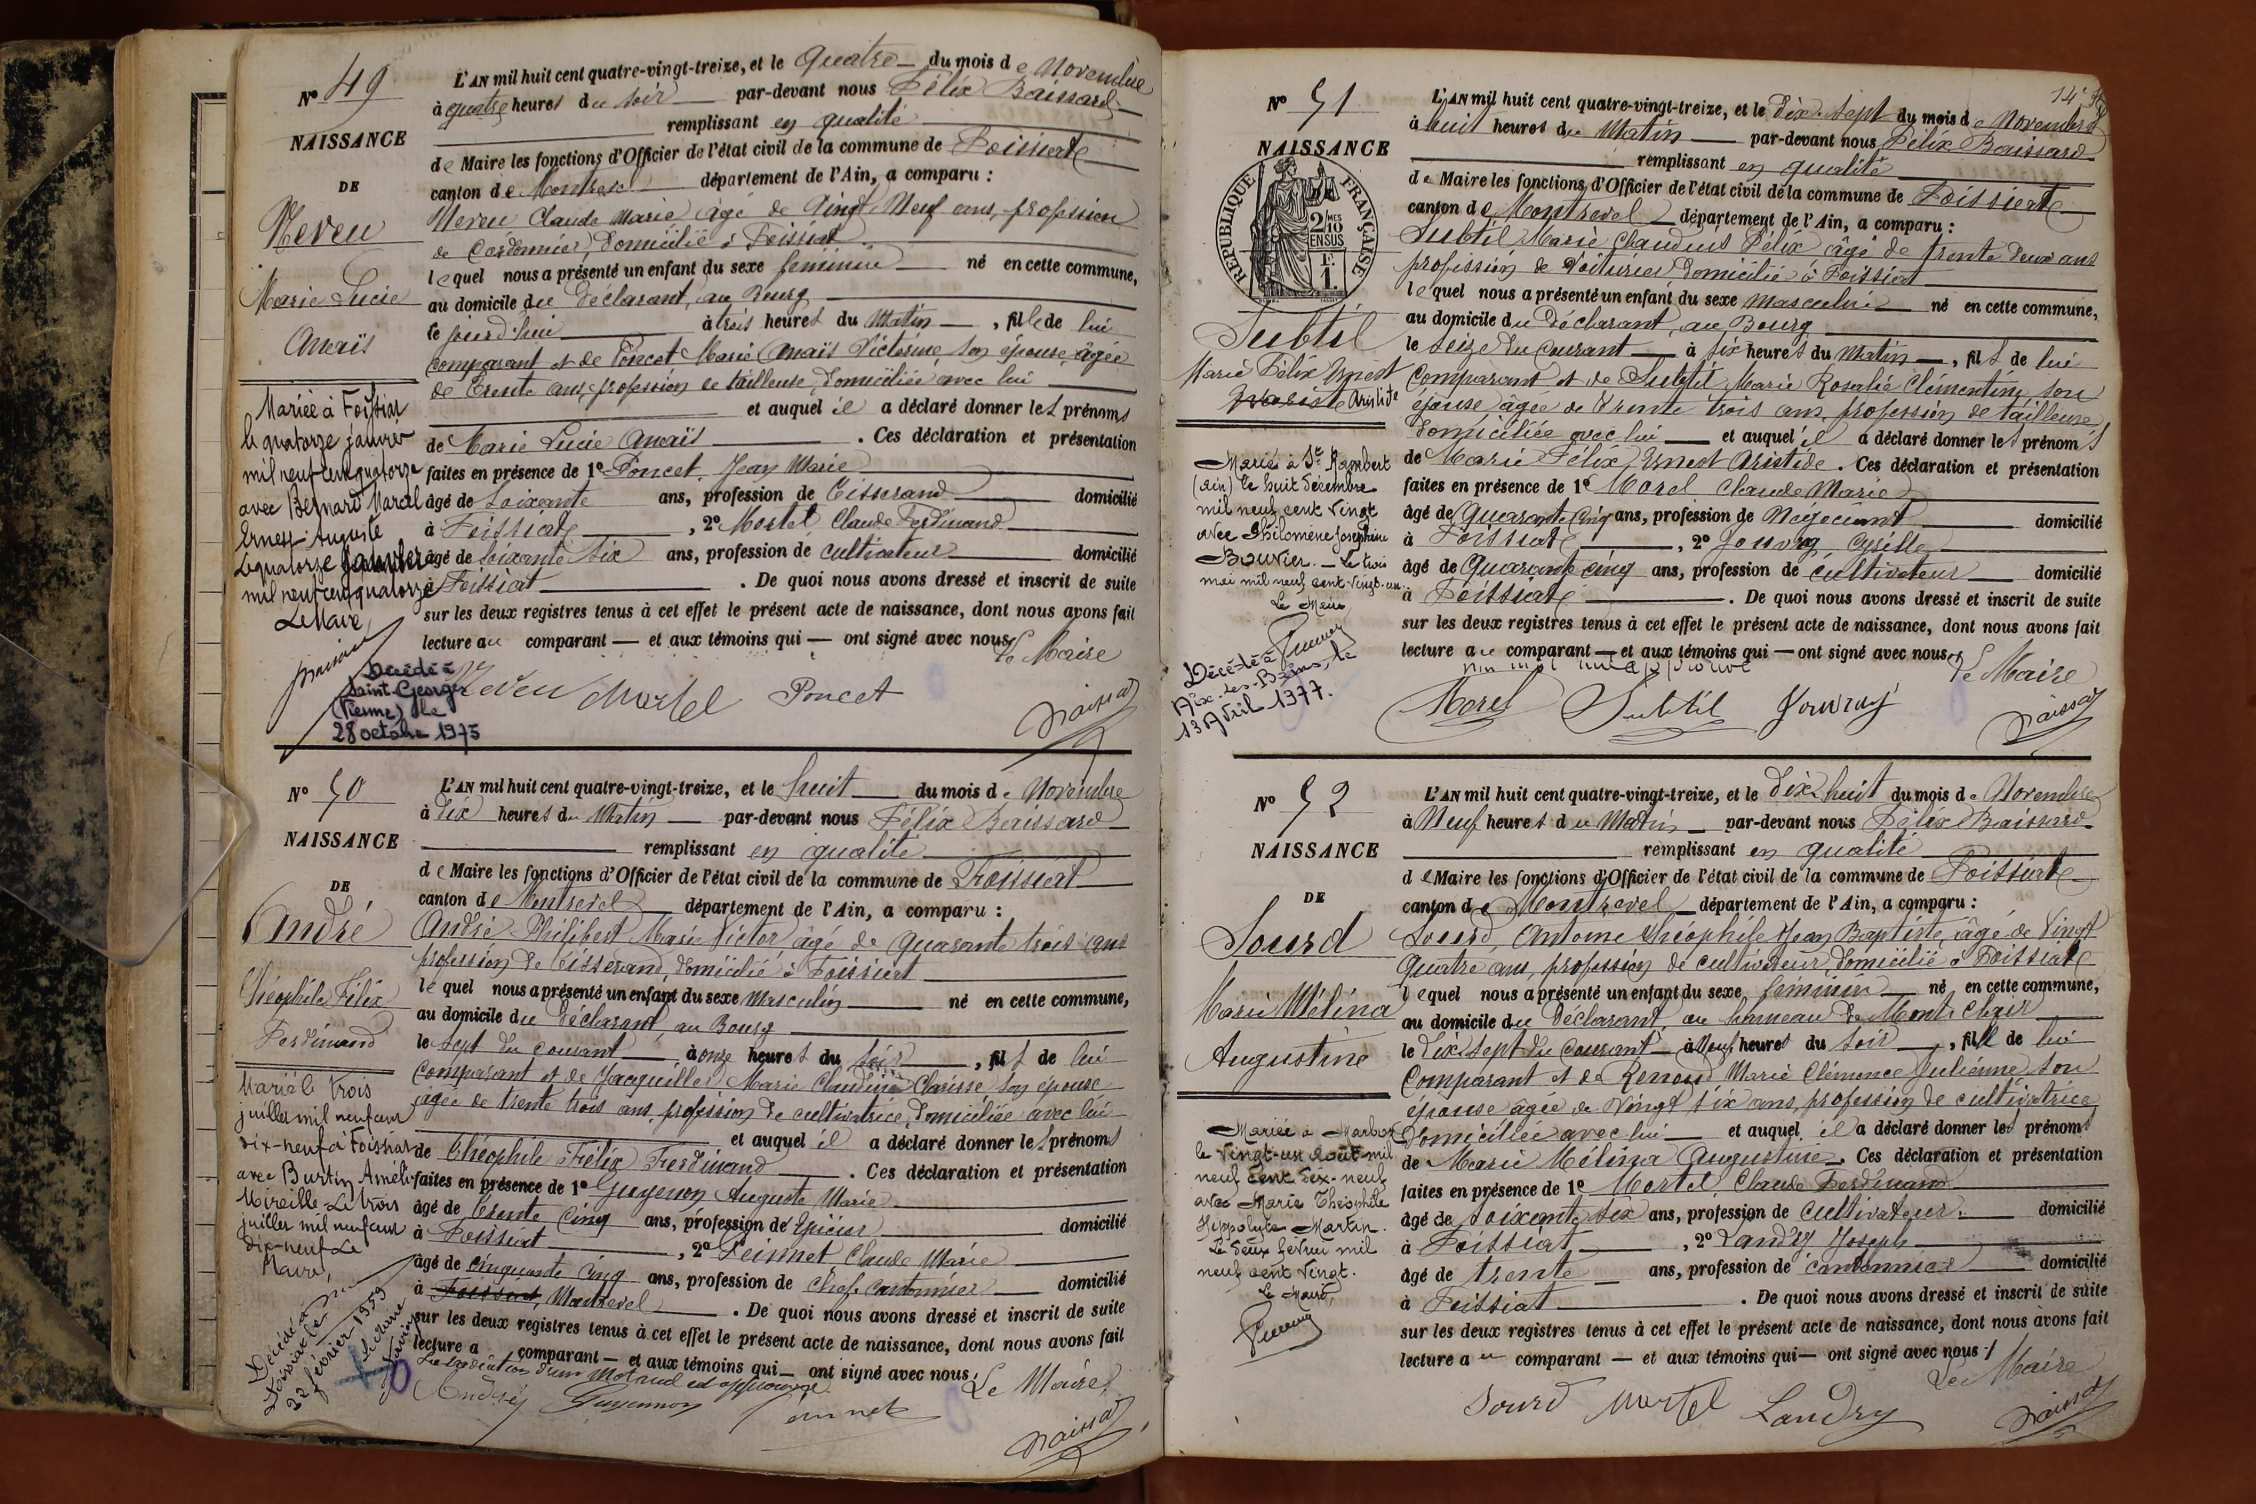 N° 49
NAISSANCE
DE
Neveu
Marie Lucie
Anaïs
Mariée à Foissiat
le quatorze janvier
mil neuf cent quatorze
avec Bernard Marcel
Ernest Auguste
Le quatorze janvier
mil neuf cent quatorze
Le Maire,
Décédée à
Saint-Georges
(Vienne) le
28 octobre 1975
L'AN mil huit cent quatre-vingt-treize, et le quatre du mois de Novembre
à quatre heures du soir par-devant nous Félix Baissard
remplissant en qualité
de Maire les fonctions d'Officier de l'état civil de la commune de Foissiat
canton de Montrevel département de l'Ain, a comparu :
Neveu Claude Marie âgé de Vingt Neuf ans, profession
de Cordonnier, domicilié à Foissiat
lequel nous a présenté un enfant du sexe féminin né en cette commune,
au domicile du Déclarant, au Bourg
le jourd'hui à trois heures du Matin, fille de lui
comparant et de Poncet Marie Anaïs Victorine son épouse âgée
de Trente ans, profession de tailleuse, domiciliée avec lui
et auquel il a déclaré donner les prénoms
de Marie Lucie Anaïs. Ces déclaration et présentation
faites en présence de 1° Poncet Jean Marie
âgé de soixante ans, profession de Tisserand domicilié
à Foissiat, 2° Mortel Claude Ferdinand
âgé de soixante six ans, profession de cultivateur domicilié
à Foissiat. De quoi nous avons dressé et inscrit de suite
sur les deux registres tenus à cet effet le présent acte de naissance, dont nous avons fait
lecture au comparant — et aux témoins qui — ont signé avec nous.
Le Maire
Neveu Mortel Poncet
Baissard
N° 50
NAISSANCE
DE
André
Théophile Félix
Ferdinand
Marié le trois
juillet mil neuf cent
dix-neuf à Foissiat
avec Burtin Amélie
Mireille Le trois
juillet mil neuf cent
dix-neuf Le
Maire,
Décédé à
Foissiat le
22 février 1959
L'AN mil huit cent quatre-vingt-treize, et le huit du mois de Novembre
à dix heures du Matin par-devant nous Félix Baissard
remplissant en qualité
de Maire les fonctions d'Officier de l'état civil de la commune de Foissiat
canton de Montrevel département de l'Ain, a comparu :
André Philibert Marie Victor âgé de quarante trois ans
profession de Tisserand, domicilié à Foissiat
lequel nous a présenté un enfant du sexe Masculin né en cette commune,
au domicile du Déclarant au Bourg
le sept du courant à onze heures du soir, fils de lui
comparant et de Jacquiller Marie Claudine Clarisse son épouse
âgée de trente trois ans, profession de cultivatrice, domiciliée avec lui
et auquel il a déclaré donner les prénoms
de Théophile Félix Ferdinand. Ces déclaration et présentation
faites en présence de 1° Guyenon Auguste Marie
âgé de trente cinq ans, profession de Epicier domicilié
à Foissiat, 2° Claude Marie
âgé de cinquante cinq ans, profession de chef cantonnier domicilié
à Foissiat, Montrevel. De quoi nous avons dressé et inscrit de suite
sur les deux registres tenus à cet effet le présent acte de naissance, dont nous avons fait
lecture a comparant — et aux témoins qui — ont signé avec nous.
La radiation d'un Mot nul est approuvée. Le Maire,
André Guyennon
Baissard
14
N° 51
NAISSANCE
REPUBLIQUE FRANÇAISE
2/10
EN SUS
1 F.
Subtil
Marie Félix Ernest
Aristide
Marié à St Rambert
(Ain) le huit Décembre
mil neuf cent vingt
avec Philomène Joséphine
Bouvier. — Le trois
mai mil neuf cent vingt-un
Le Maire
Décédé à
Aix-les-Bains, le
13 Avril 1977.
L'AN mil huit cent quatre-vingt-treize, et le dix-sept du mois de Novembre
à huit heures du Matin par-devant nous Félix Baissard
remplissant en qualité
de Maire les fonctions d'Officier de l'état civil de la commune de Foissiat
canton de Montrevel département de l'Ain, a comparu :
Subtil Marie Claudius Félix âgé de trente deux ans
profession de Voiturier domicilié à Foissiat
lequel nous a présenté un enfant du sexe Masculin né en cette commune,
au domicile du Déclarant, au Bourg
le seize du courant à six heures du Matin, fils de lui
comparant et de Subtil Marie Rosalie Clémentine son
épouse, âgée de trente trois ans, profession de tailleuse
domiciliée avec lui et auquel il a déclaré donner les prénoms
de Marie Félix Ernest Aristide. Ces déclaration et présentation
faites en présence de 1° Morel Claude Marie
âgé de quarante cinq ans, profession de Négociant domicilié
à Foissiat, 2° Jouvray Cyrille
âgé de quarante cinq ans, profession de cultivateur domicilié
à Foissiat. De quoi nous avons dressé et inscrit de suite
sur les deux registres tenus à cet effet le présent acte de naissance, dont nous avons fait
lecture au comparant — et aux témoins qui — ont signé avec nous.
un mot nul approuvé Le Maire
Morel Subtil Jouvray
Baissard
N° 52
NAISSANCE
DE
Sourd
Marie Mélina
Augustine
Mariée à Marboz
le vingt-un août mil
neuf cent dix-neuf
avec Marie Théophile
Hippolyte Martin.
Le deux février mil
neuf cent vingt.
Le Maire,
L'AN mil huit cent quatre-vingt-treize, et le dix-huit du mois de Novembre
à Neuf heures du Matin par-devant nous Félix Baissard
remplissant en qualité
de Maire les fonctions d'Officier de l'état civil de la commune de Foissiat
canton de Montrevel département de l'Ain, a comparu :
Sourd, Antoine Théophile Jean Baptiste, âgé de Vingt
quatre ans, profession de cultivateur domicilié à Foissiat
lequel nous a présenté un enfant du sexe féminin né en cette commune,
au domicile du Déclarant, au hameau de Mont-Clair
le dix-sept du courant à Neuf heures du soir, fille de lui
comparant et de Renoud Marie Clémence Julienne son
épouse âgée de Vingt six ans, profession de cultivatrice
domiciliée avec lui et auquel il a déclaré donner les prénoms
de Marie Mélina Augustine. Ces déclaration et présentation
faites en présence de 1° Mortel Claude Ferdinand
âgé de soixante six ans, profession de cultivateur domicilié
à Foissiat, 2° Landry Joseph
âgé de trente ans, profession de cantonnier domicilié
à Foissiat. De quoi nous avons dressé et inscrit de suite
sur les deux registres tenus à cet effet le présent acte de naissance, dont nous avons fait
lecture au comparant — et aux témoins qui — ont signé avec nous
Le Maire
Sourd Mortel Landry
Baissard